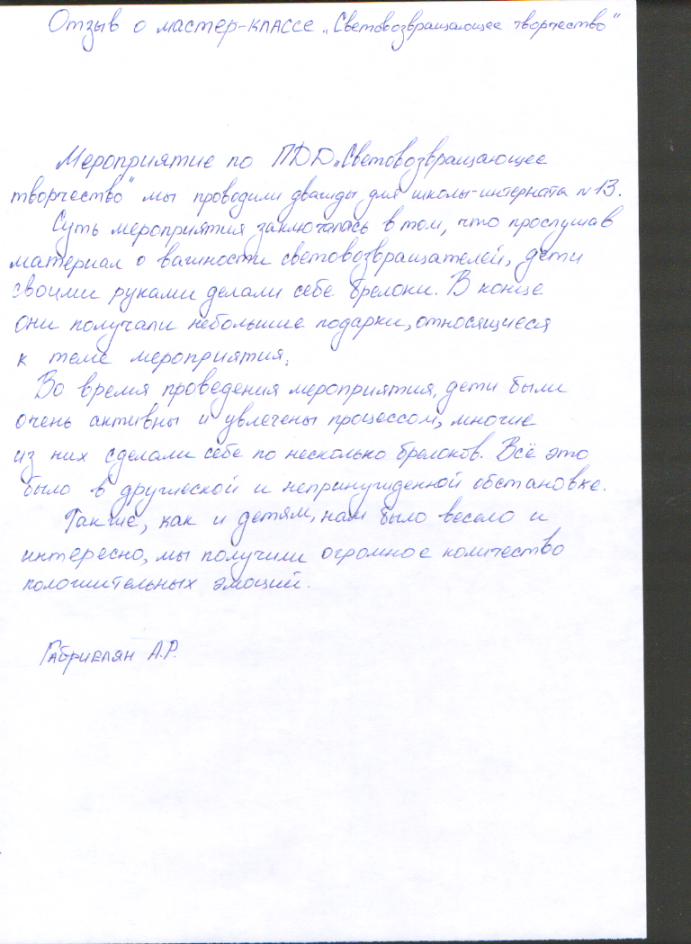 Отзыв о мастер-классе „Световозвращающее творчество"
Мероприятие по ПДД „Световозвращающее
творчество" мы проводили дважды для школы-интерната №13.
Суть мероприятия заключалась в том, что прослушав
материал о важности световозвращателей, дети
своими руками делали себе брелоки. В конце
они получали небольшие подарки, относящиеся
к теме мероприятия.
Во время проведения мероприятия, дети были
очень активны и увлечены процессом, многие
из них сделали себе по несколько брелоков. Всё это
было в дружеской и непринужденной обстановке.
Также, как и детям, нам было весело и
интересно, мы получили огромное количество
положительных эмоций.
Габриелян А.Р.